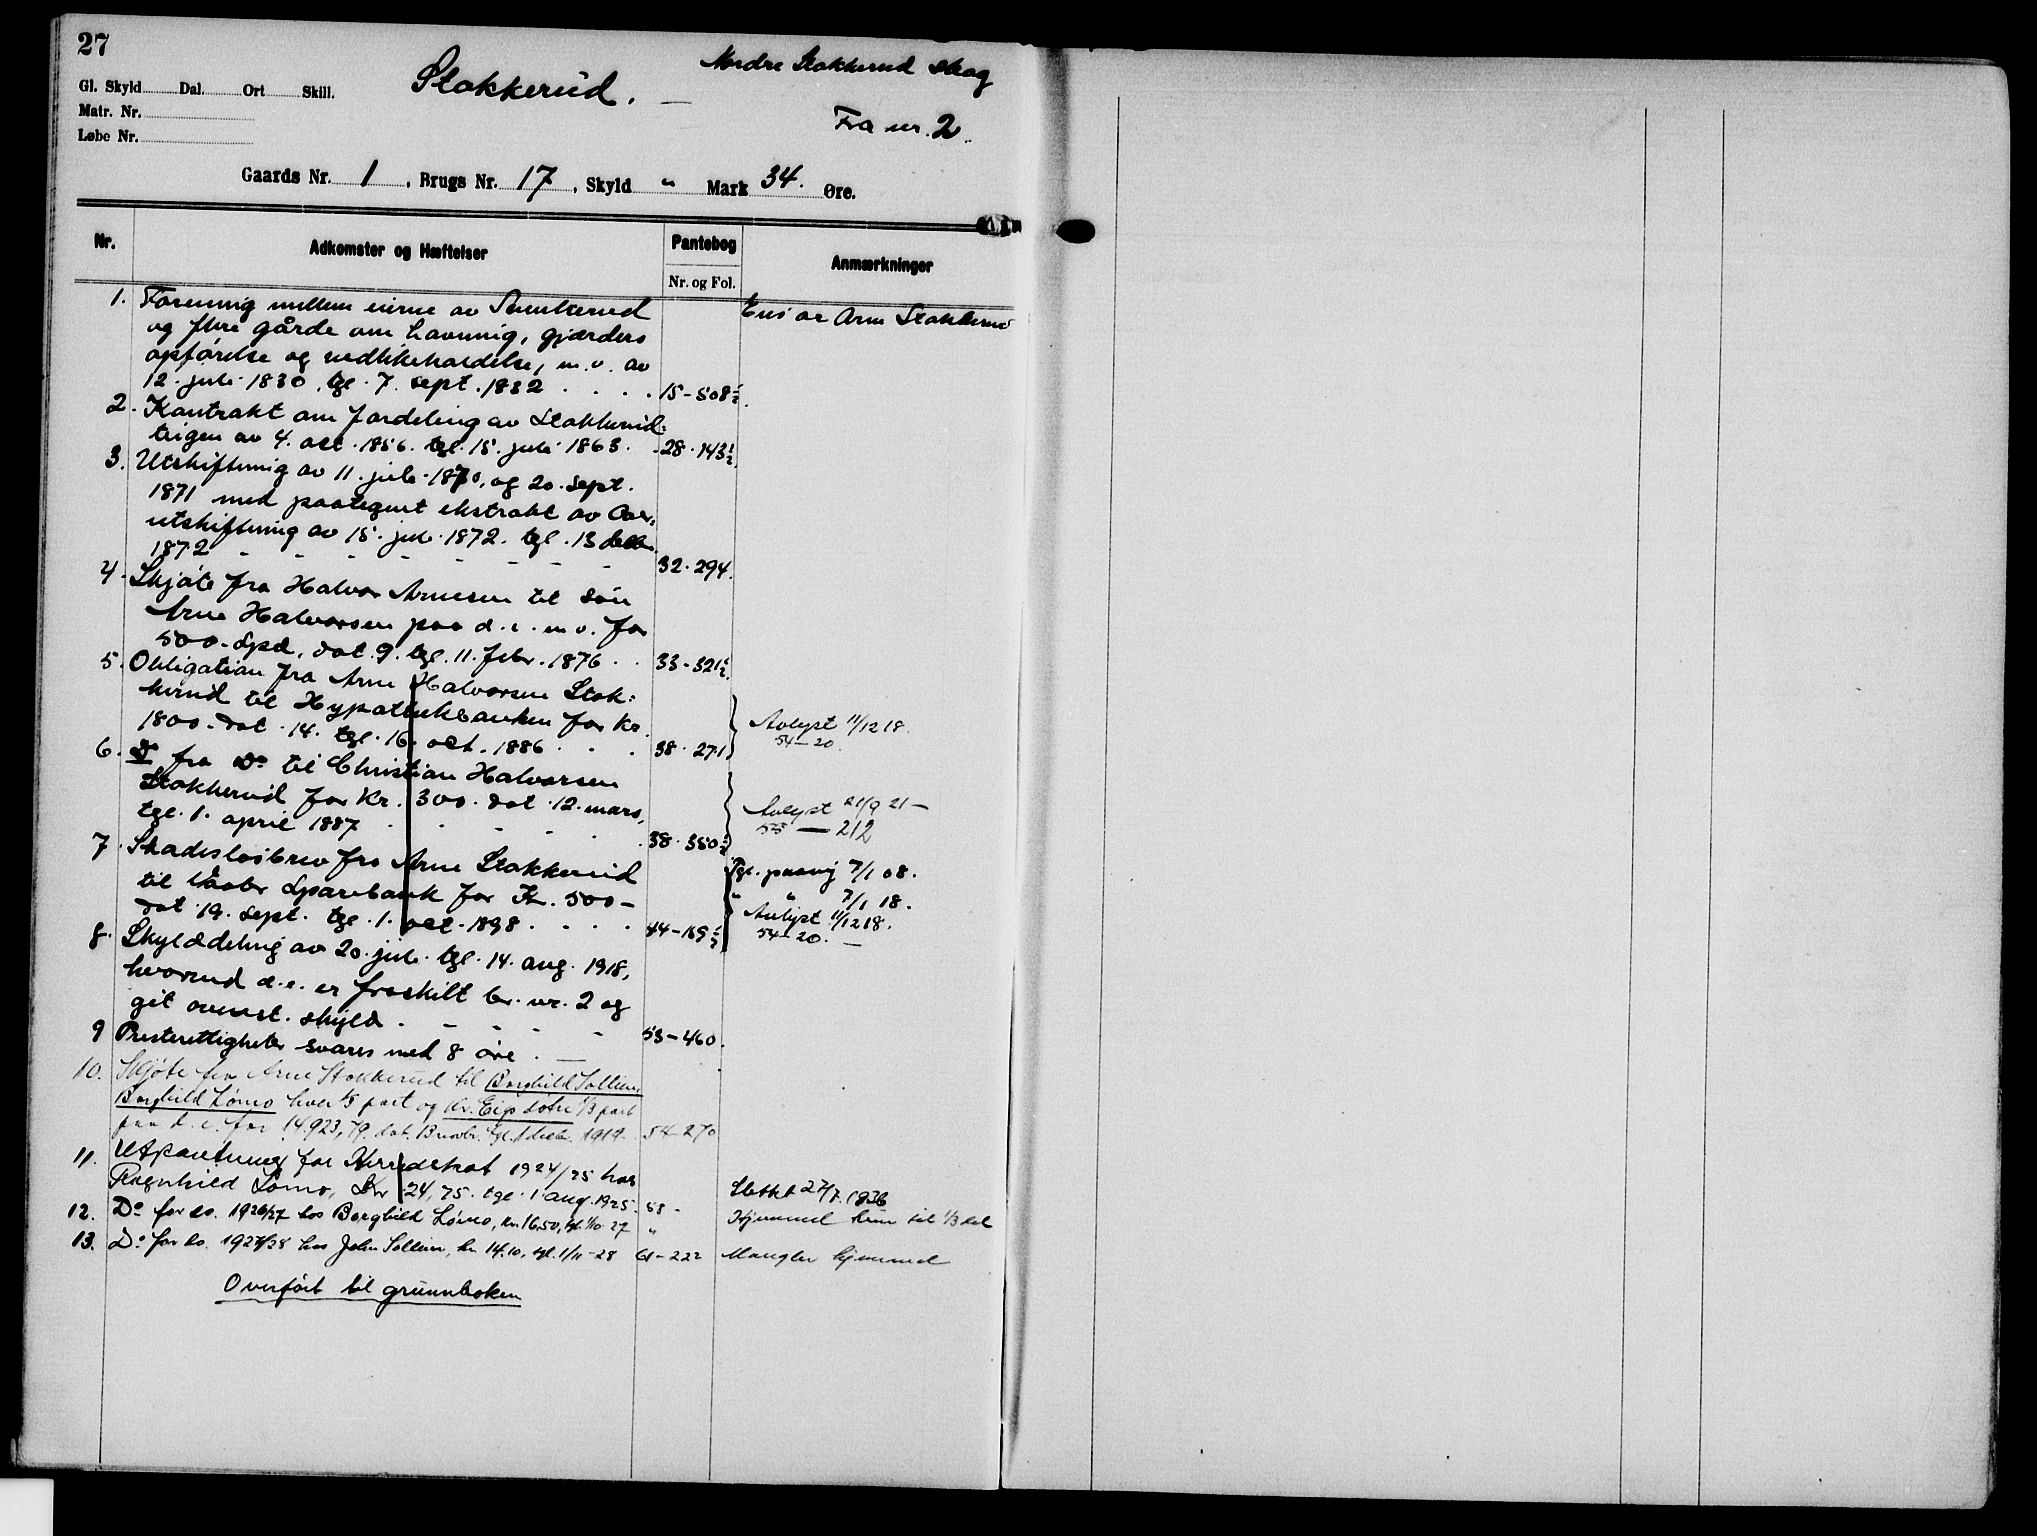 27
Gl. Skyld Dal. Ort Skill.
Matr. Nr.
Løbe Nr.
Stokkerud.
Nordre Stokkerud skog
Fra nr. 2.
Gaards Nr. 1, Brugs Nr. 17, Skyld " Mark 34. Øre.
Nr. Adkomster og Hæftelser Pantebog Anmærkninger
Nr. og Fol.
1. Forening mellem eierne av
og flere gårde om havning, gjærders
opførelse og vedlikeholdelse, m.v. av
12. juli 1830, tgl. 7. sept. 1832 . . . . 15-508½.
Eies av Arne Stokkerud
2. Kontrakt om fordeling av Stokkerud-
teigen av 4. oct. 1856. tgl. 15. juli 1863. 28-143½.
3. Utskiftning av 11. juli 1870, og 20. sept.
1871 med paategnet ekstrakt av Over-
utskiftning av 15. juli 1872. tgl. 13 decbr.
1872 - - - - - - 32-294.
4. Skjøte fra Halvor Arnesen til søn
Arne Halvorsen paa d. e. m. v. for
500 Spd., dat. 9. tgl. 11. febr. 1876 . . 33-321½.
5. Obligation fra Arne Halvorsen Stok-
kerud til Hypothekbanken for kr.
1800- dat. 14. tgl. 16. oct. 1886 . . . 38-271
Avlyst 11/12 18.
54-20.
6. Do fra Do til Christian Halvorsen
Stokkerud for Kr. 300. dat. 12. mars,
tgl. 1. april 1887 . . . . . 38-350½
Avlyst 21/9 21-
55-212
7. Skadesløsbrev fra Arne Stokkerud
til Vaaler Sparebank for Kr. 500-
dat. 19. sept. tgl. 1. oct. 1898 . . . . 44-169½
Tgl. paany 7/1 08.
" " 7/1 18.
Avlyst 11/12 18.
54-20. -
8. Skylddeling av 20. juli tgl. 14. aug. 1918,
hvorved d. e. er fraskilt br. nr. 2 og
git ovenst. skyld . - - - - 53-460.
9 Presterettigheter svares med 8 øre . -
10. Skjøte fra Arne Stokkerud til Borghild Sollien,
Borghild Lømo hver 1/3 part og Kr. 1/3 part
paa d. e. for 14.923,79. dat. 13 novbr. tgl. 1 decbr. 1919. 54-270
11. Utpantning for Herredskat 1924/25 hos
Ragnhild Lømo, Kr 24,75. tgl. 1 aug. 1925. 58 -
Slettet 27/7. 1936
12. Do for do. 1926/27 hos Borghild Lømo, kr. 16.50, tgl. 1/10 27 "
Hjemmel kun til 1/3 del
13. Do for do. 1927/28 hos John Sollien, kr. 14.10, tgl. 1/11-28 61-222
Mangler hjemmel
Overført til grunnboken